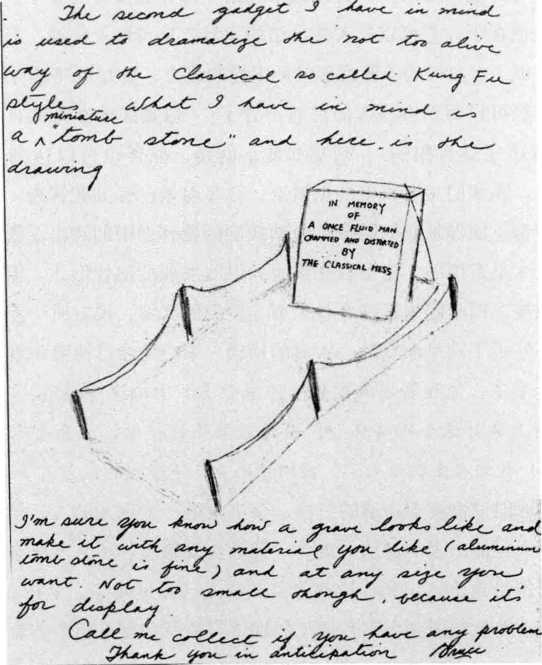 The second gadget I have in mind
is used to dramatize the not too alive
way of the Classical so called Kung Fu
styles. What I have in mind is
a ^ miniature "tomb stone" and here is the
drawing
IN MEMORY
OF
A ONCE FLUID MAN
CRAMMED AND DISTORTED
BY
THE CLASSICAL MESS
I'm sure you know how a grave looks like and
make it with any material you like (aluminum
tomb stone is fine) and at any size you
want. Not too small though, because it's
for display
Call me collect if you have any problem
Thank you in anticipation Bruce